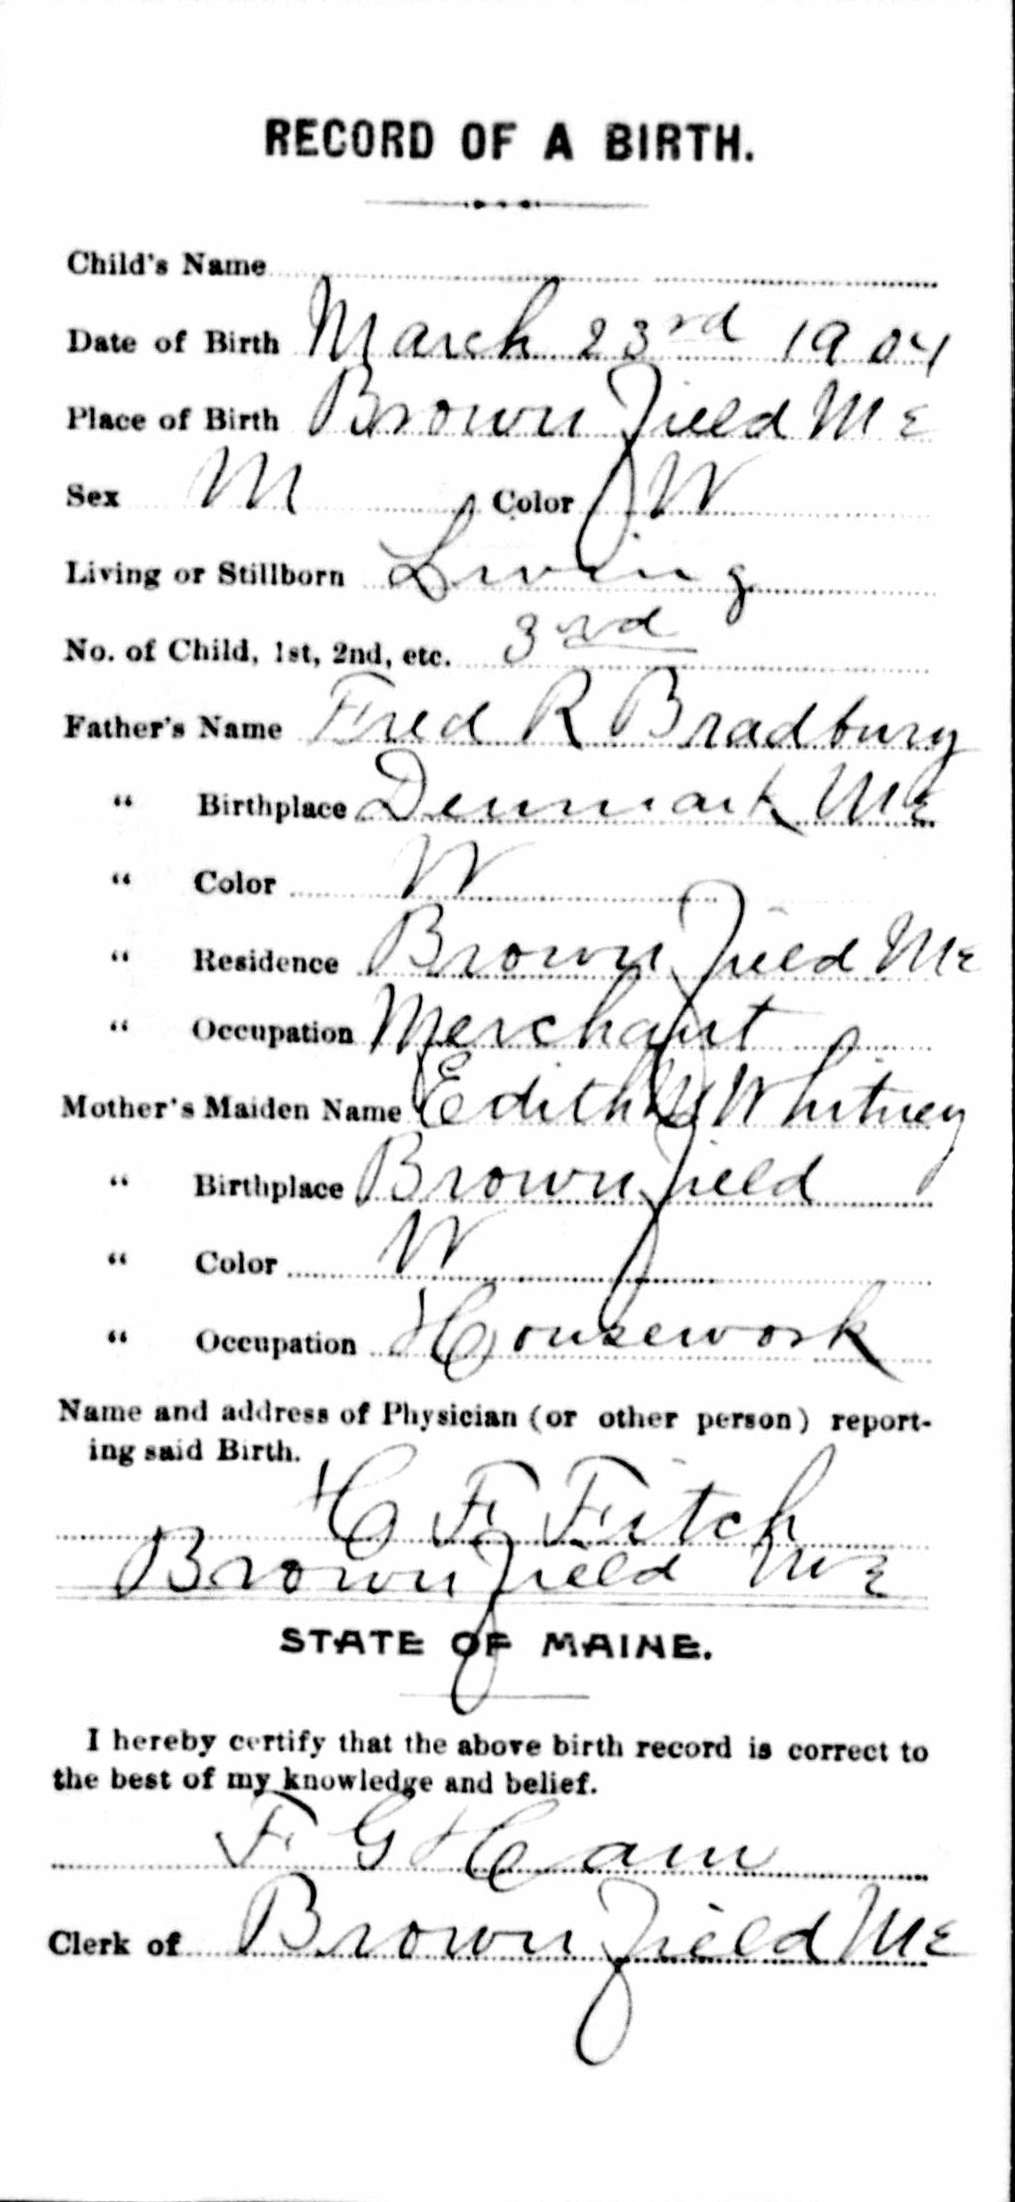 RECORD OF A BIRTH.
Child's Name
Date of Birth March 23rd 1904
Place of Birth Brownfield Me
Sex M Color W
Living or Stillborn Living
No. of Child, 1st, 2nd, etc. 3rd
Father's Name Fred R Bradbury
" Birthplace Denmark Me
" Color W
" Residence Brownfield Me
" Occupation Merchant
Mother's Maiden Name Edith Whitney
" Birthplace Brownfield
" Color W
" Occupation Housework
Name and address of Physician (or other person) report-
ing said Birth.
H F Fitch
Brownfield Me
STATE OF MAINE.
I hereby certify that the above birth record is correct to
the best of my knowledge and belief.
F G Ham
Clerk of Brownfield Me